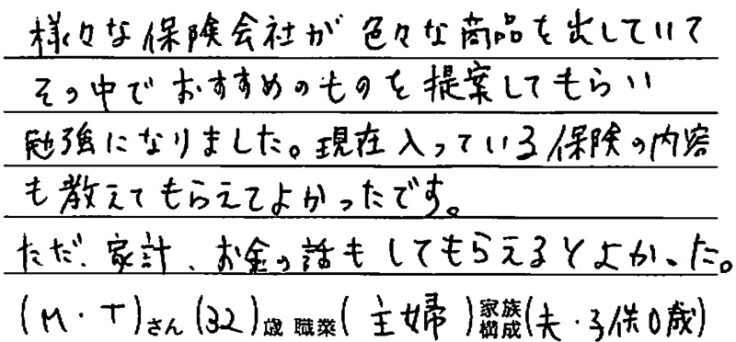 様々な保険会社が色々な商品を出していて
その中でおすすめのものを提案してもらい
勉強になりました。現在入っている保険の内容
も教えてもらえてよかったです。
ただ、家計、お金の話もしてもらえるとよかった。
(M・T)さん(32)歳 職業(主婦)家族構成(夫・子供0歳)